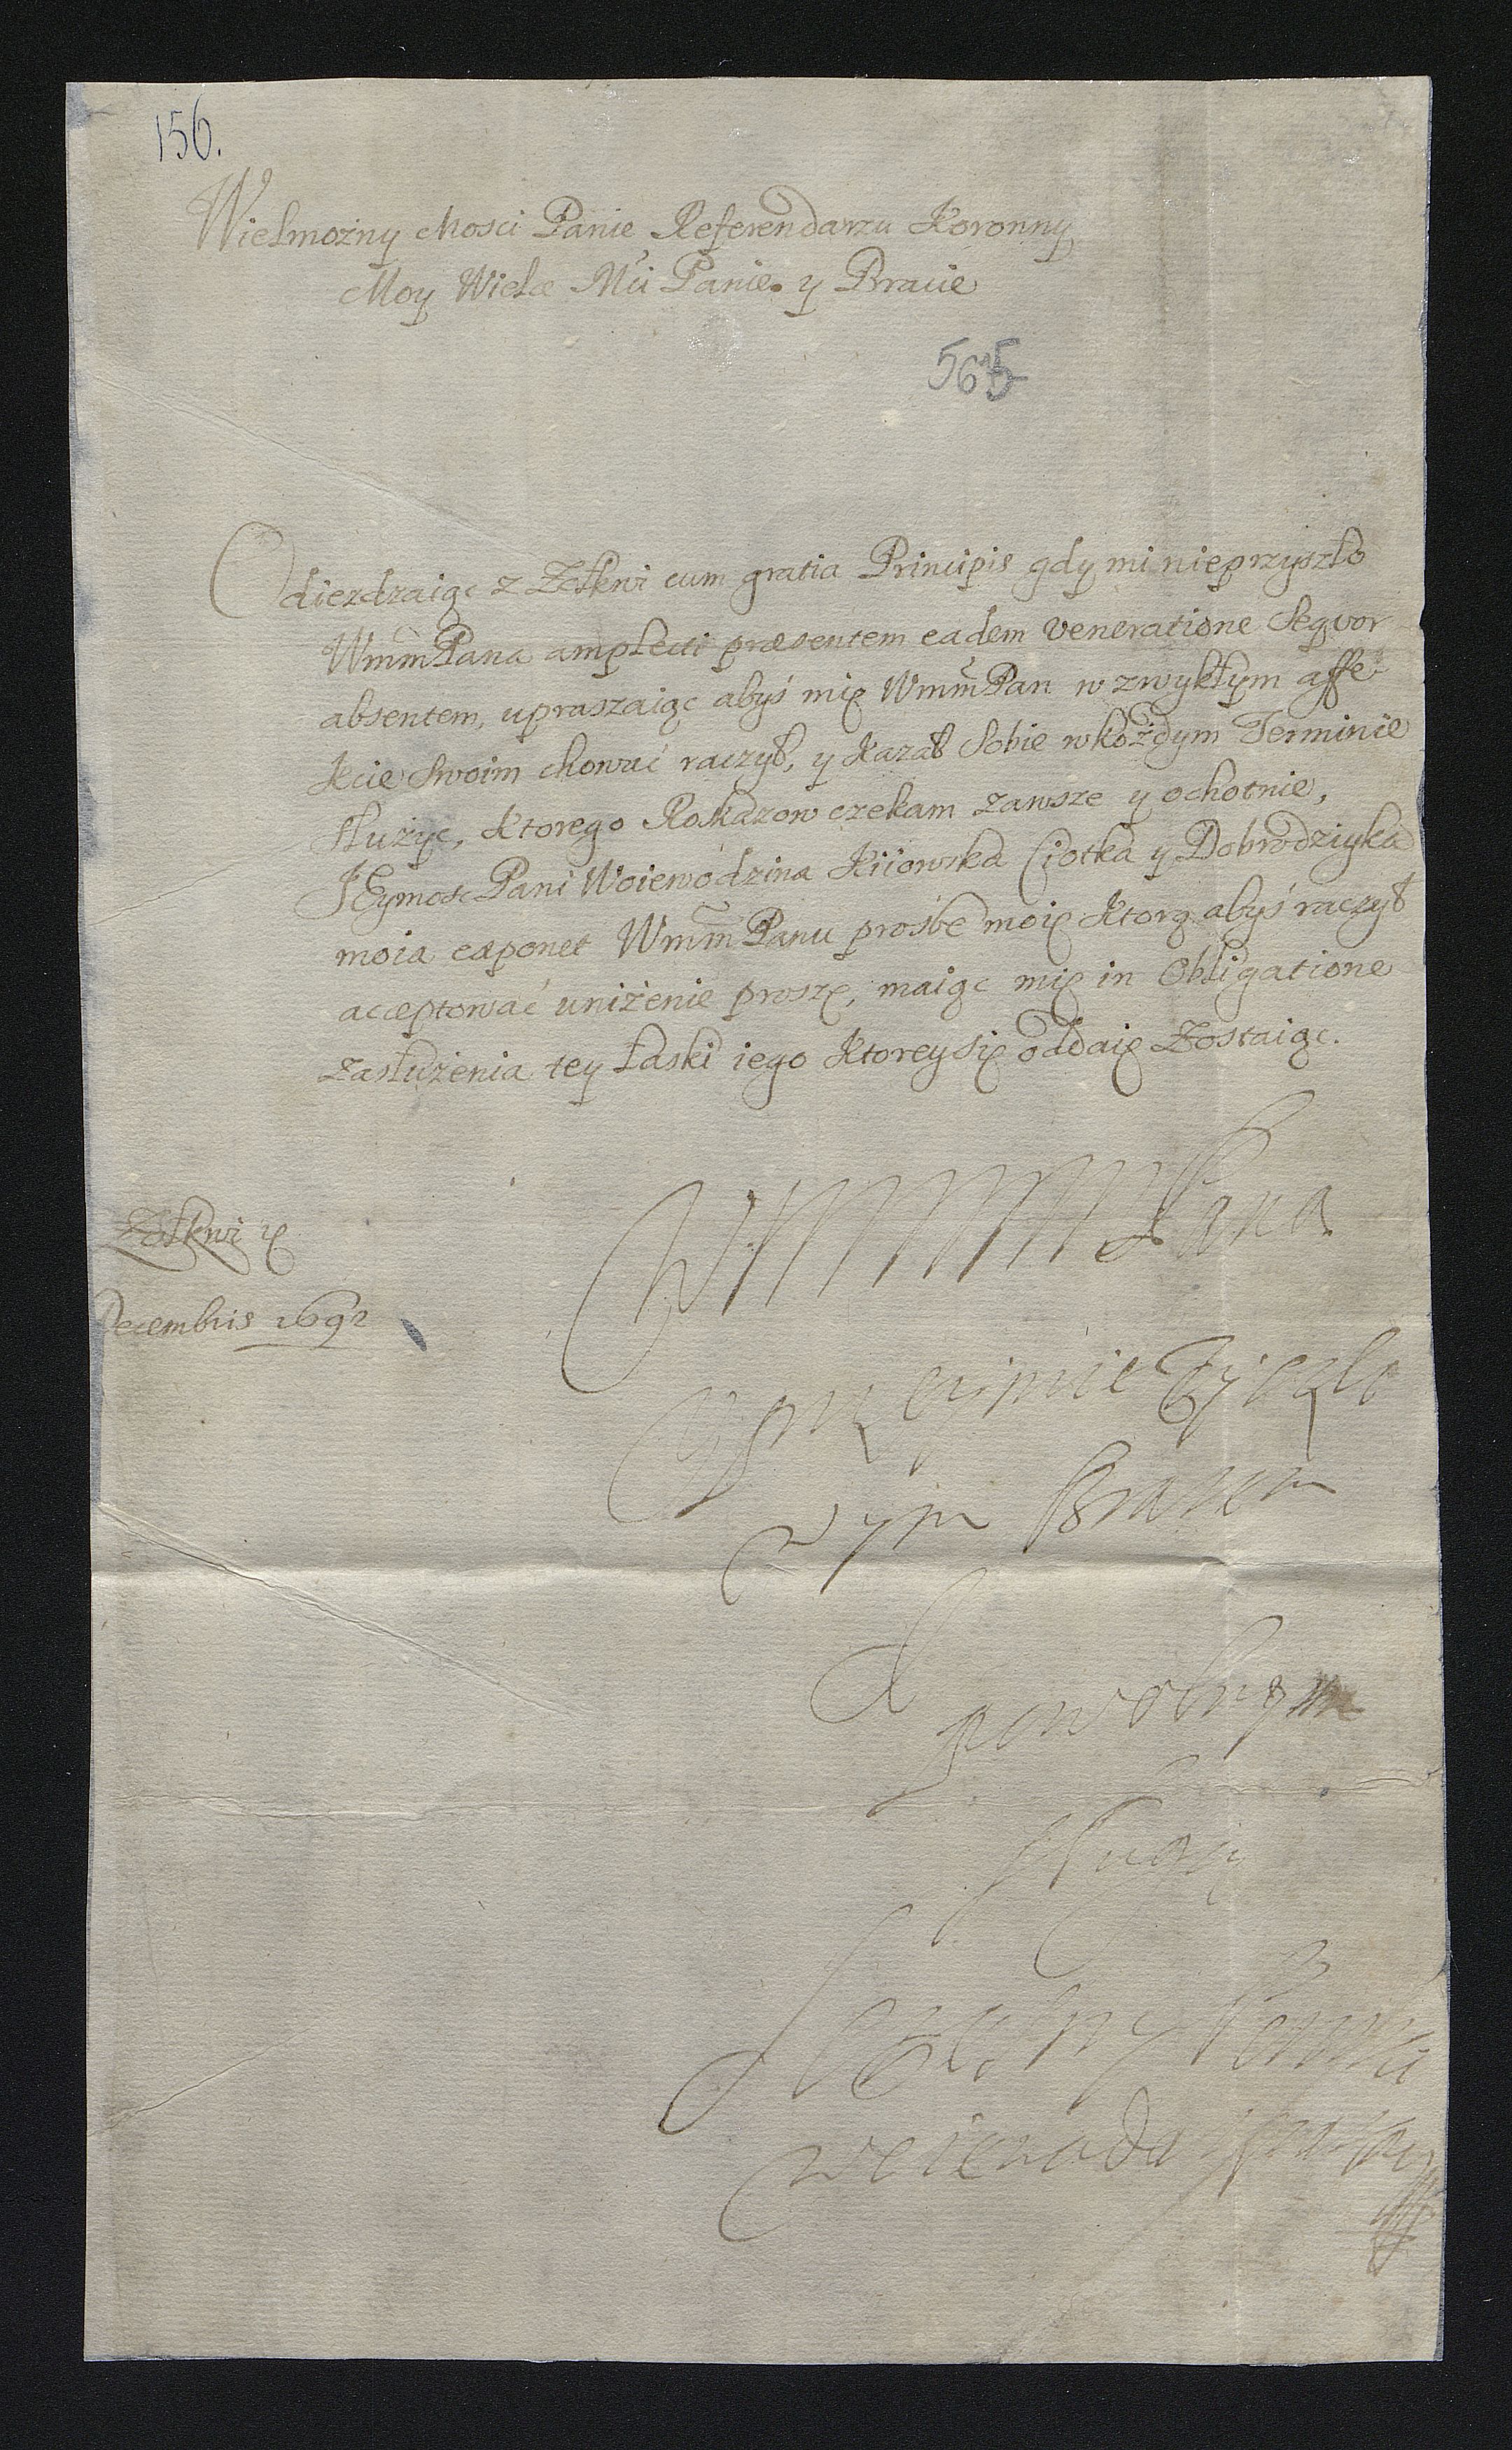 156.
Wielmożny Mosci Panie Referendarzu Koronny
Moy Wielce Mci Panie y Bracie
565
Odiezdzaiąc z Żołkwi cum gratia Principis gdy mi nieprzyszło
WmmPana amplecti præsentem eadem veneratione Seqvor
absentem, upraszaiąc abyś mię WmmPan w zwykłym affe-
kcie Swoim chować raczył, y kazał Sobie w każdym Terminie
służyc, ktorego Roskazow czekam zawsze y ochotnie,
JEymosc Pani Woiewodzina Kiiowska Ciotka y Dobrodzieyka
moia exponet WmmPanu prośbe moię ktorą abyś raczył
acceptować uniżenie proszę, maiąc mię in Obligatione
zasłużenia tey łaski iego ktorey się oddaię Zostaiąc.
Pana
Żołkwi
Decembris 1692
uprzeymie życzli
wym Bratem
y powolnym
sługą